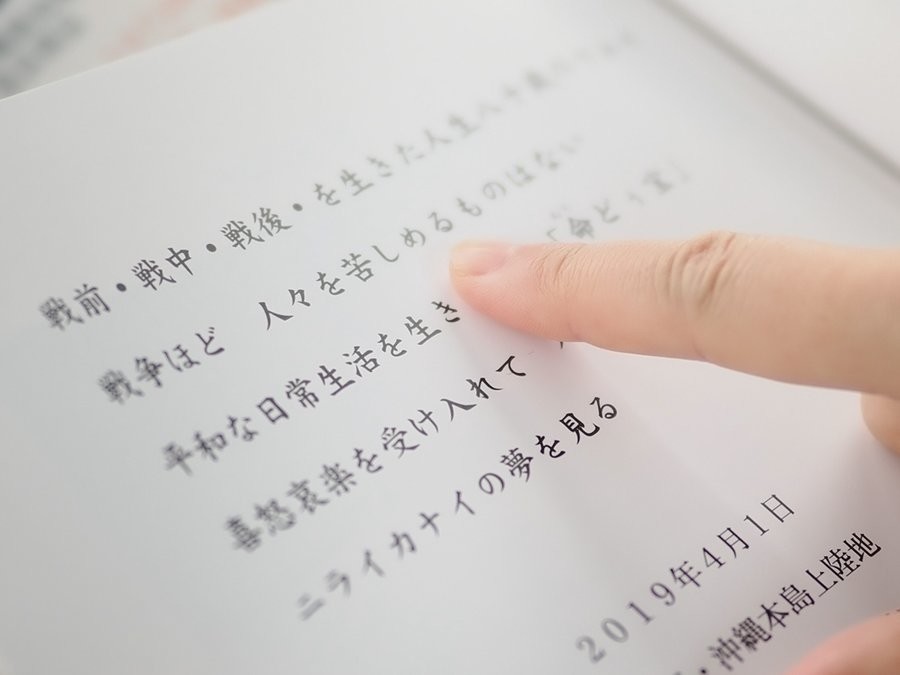 戦前・戦中・戦後・を生きた人生八十歳
戦争ほど 人々を苦しめるものはない
平和な日常生活を生き 「命どぅ宝」
喜怒哀楽を受け入れて
ニライカナイの夢を見る
2019年4月1日
・沖縄本島上陸地